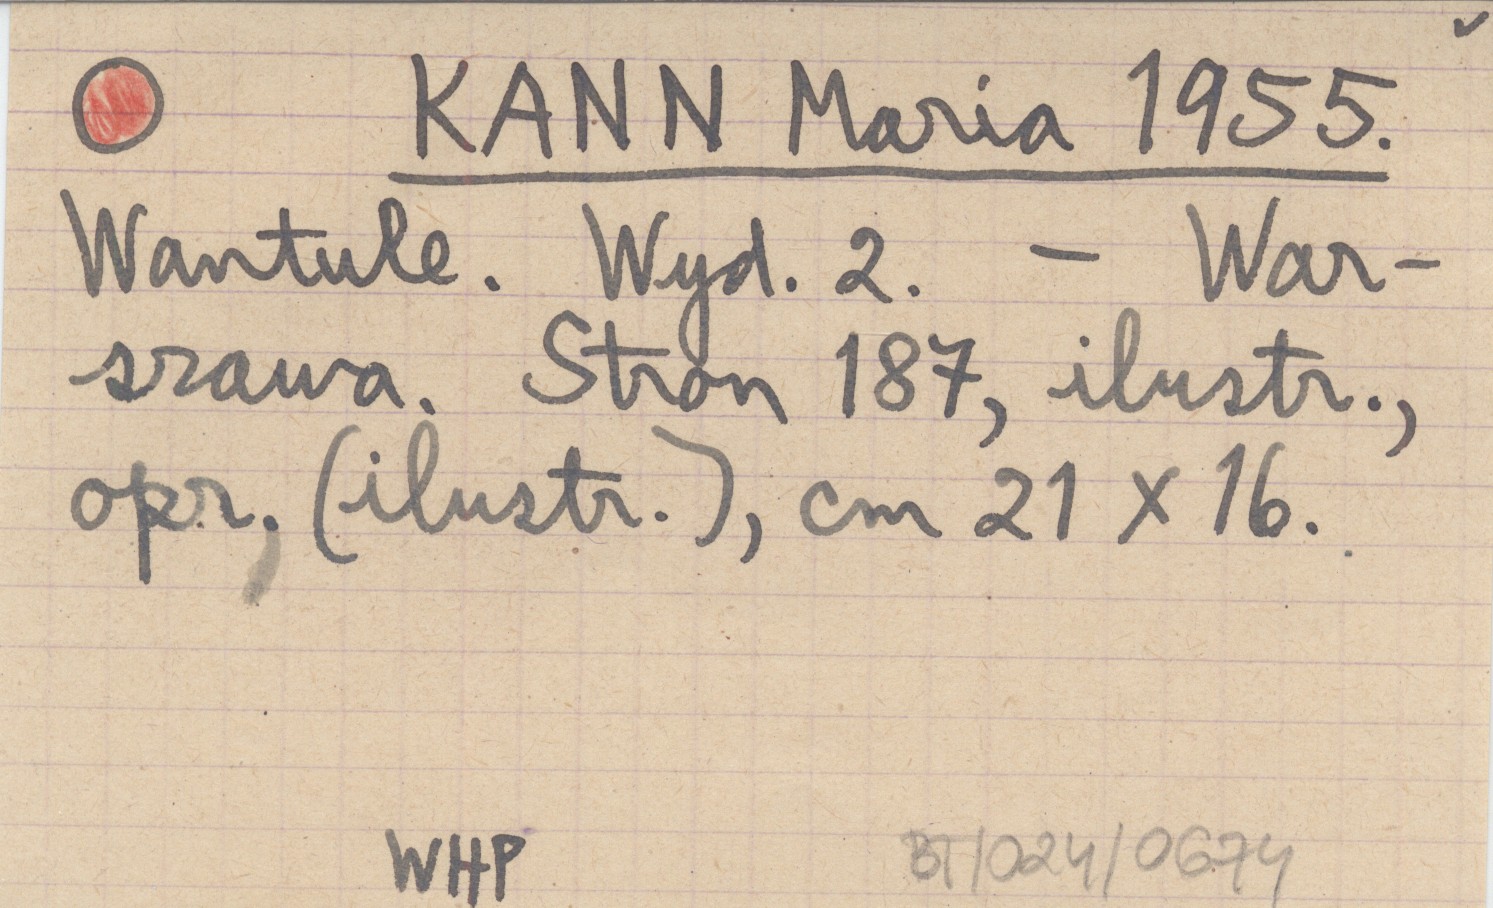 KANN Maria 1955.
Wantule. Wyd. 2. – War-
szawa. Stron 187, ilustr.,
opr., (ilustr.), cm 21 x 16.
WHP BT/024/0674